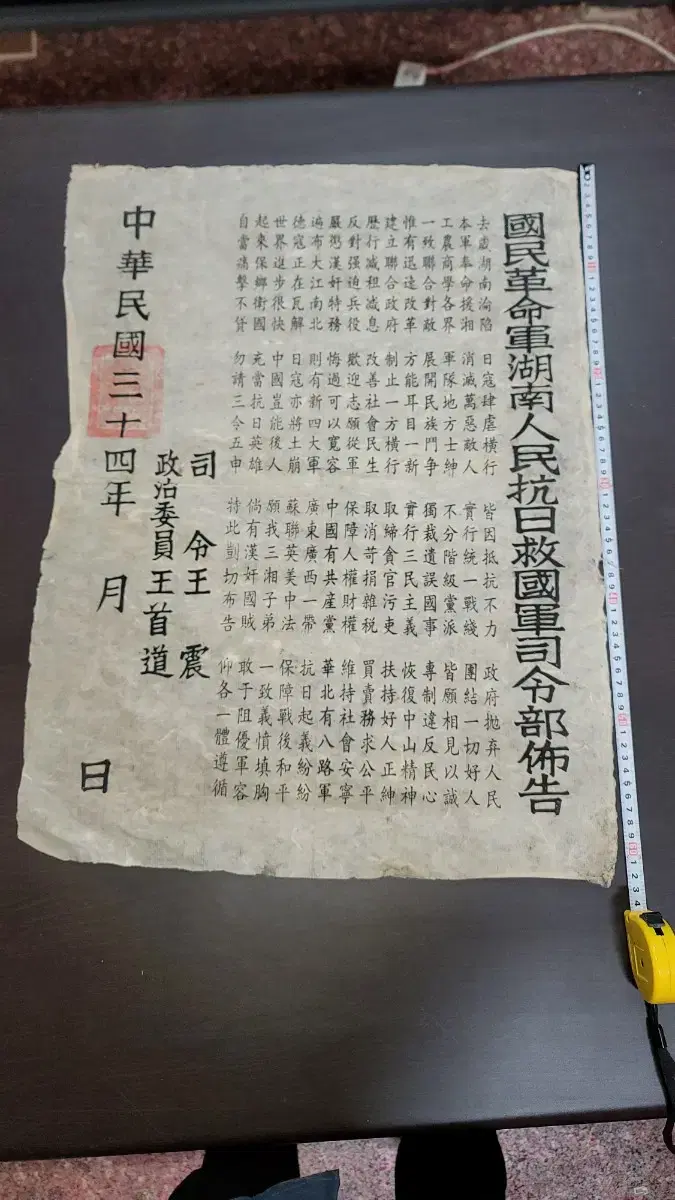 國民革命軍湖南人民抗日救國軍司令部佈告
去歲湖南淪陷 日寇肆虐橫行 皆因抵抗不力 政府拋弃人民
本軍奉命援湘 消滅萬惡敵人 實行統一戰綫 團結一切好人
工農商學各界 軍隊地方士紳 不分階級黨派 皆願相見以誠
一致聯合對敵 展開民族鬥争 獨裁遺誤國事 專制違反民心
惟有迅速改革 方能耳目一新 實行三民主義 恢復中山精神
建立聯合政府 制止一方橫行 取締貪官污吏 扶持好人正紳
歷行减租减息 改善社會民生 取消苛捐雜税 買賣務求公平
反對强迫兵役 歡迎志願從軍 保障人權財權 維持社會安寧
嚴懲漢奸特務 悔過可以寬容 中國有共産黨 華北有八路軍
遍布大江南北 則有新四大軍 廣東廣西一帶 抗日起義紛紛
德寇正在瓦解 日寇亦將土崩 蘇聯英美中法 保障戰後和平
世界進步很快 中國豈能後人 願我三湘子弟 一致義憤填胸
起來保鄉衛國 充當抗日英雄 倘有漢奸國賊 敢于阻優軍容
自當痛擊不貸 勿請三令五申 特此剴切布告 仰各一體遵循
司令王震
政治委員王首道
中華民國三十四年 月 日